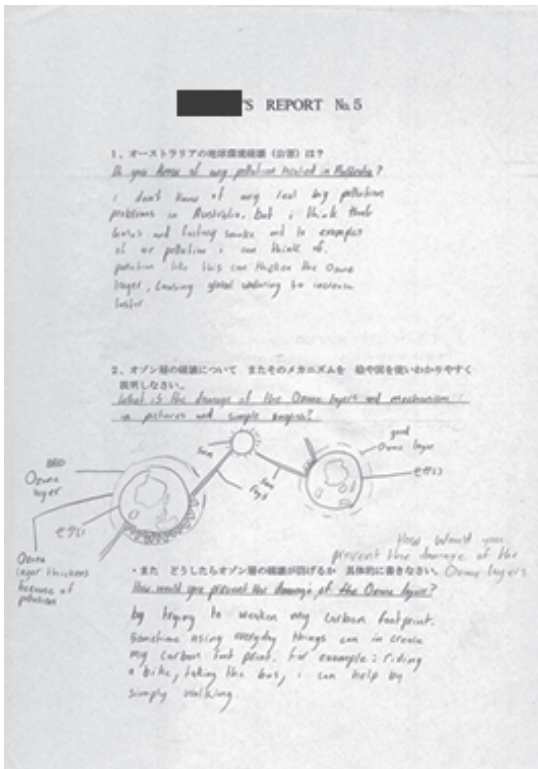 'S REPORT No.5
1、オーストラリアの地球環境破壊（公害）は？
Do you know of any pollution located in Australia?
i don't know of any real big pollution
problems in Australia. But i think that
and factory smoke are to examples
of air pollution i can think of.
pollution like this can thicken the Ozone
layer, causing global warming to increase
faster.
2、オゾン層の破壊について またそのメカニズムを 絵や図を使いわかりやすく
説明しなさい。
What is the damage of the Ozone layers and mechanism
in pictures and simple english?
BAD
Ozone
layer
Sun
Sun
good
Ozone layer
せかい
せかい
Ozone
layer thickens
because of
pollution
How would you
prevent the damage of the
Ozone layers
・また どうしたらオゾン層の破壊が防げるか 具体的に書きなさい。
How would you prevent the damage of the Ozone layers?
by trying to weaken my carbon footprint.
Sometime using everyday things can in crease
my carbon foot print. for example: riding
a bike, taking the bus, i can help by
simply walking.